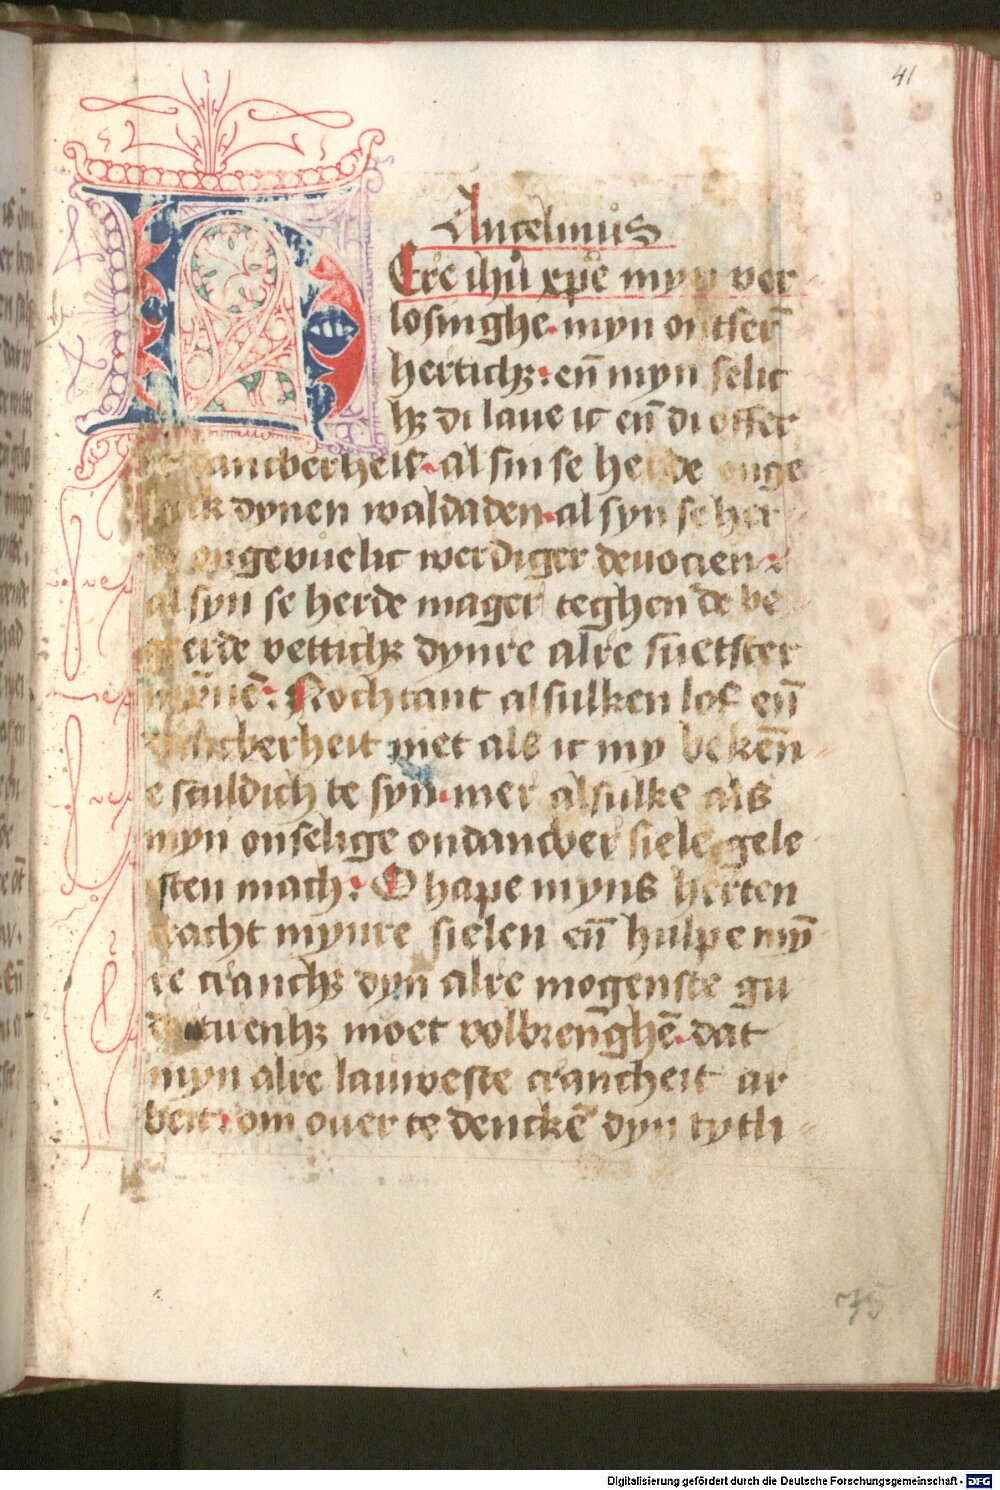 41
Ancelmus
Ere ihu xpe myn ver
losinghe· myn ontfer
herticħ: en̄ myn selic
ħ di laue ic en̄ di offer
dancberheit· al sin se herde onge
lijk dynen waldaden· al syn se her
de ongevuelic werdiger deuocien:
al syn se herde mager teghen de be
gerde vetticħ dynre alre suetster
mȳnē: Nochtant alsulken lof en̄
dancberheit niet als ic my bekēn
e sculdich te syn· mer alsulke als
myn onselige ondancber siele gele
sten mach: O hape myns herten
cracht mynre sielen en̄ hulpe mȳ
re crancħ dyn alre mogenste gu
moet volbrenghē· dat
myn alre lauweste crancheit ar
beit: om ouer te denckē dyn tytli
75
Digitalisierung gefördert durch die Deutsche Forschungsgemeinschaft - DFG